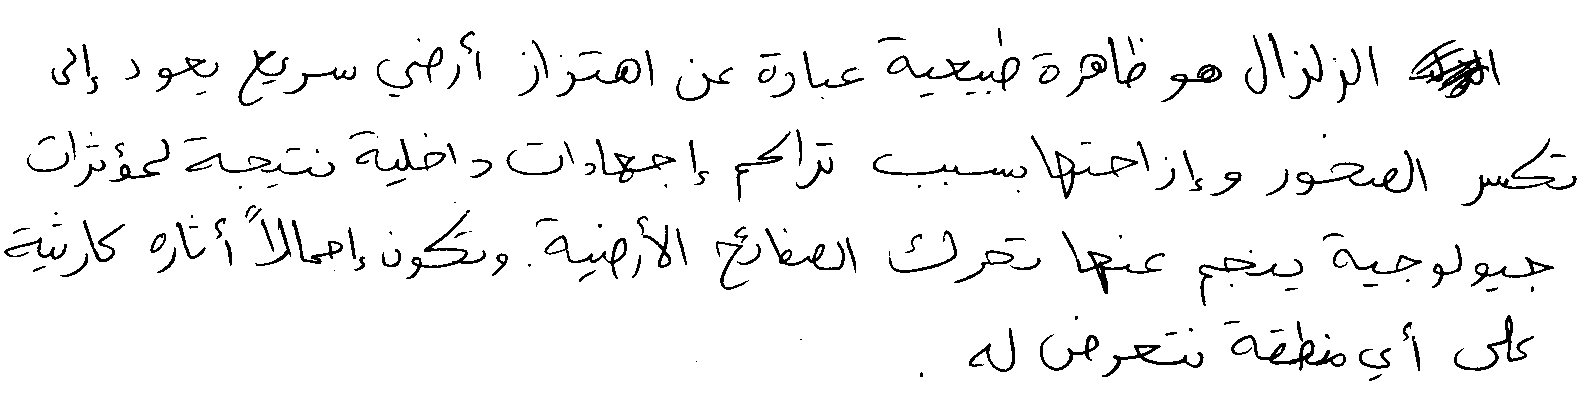 الزلزال هو ظاهرة طبيعية عبارة عن اهتزاز أرضي سريع يعود إلى
تكسر الصخور وإزاحتها بسبب تراكم إجهادات داخلية نتيجة لمؤثرات
جيولوجية ينجم عنها تحرك الصفائح الأرضية. وتكون إجمالاً أثاره كارثية
على أي منطقة تتعرض له .